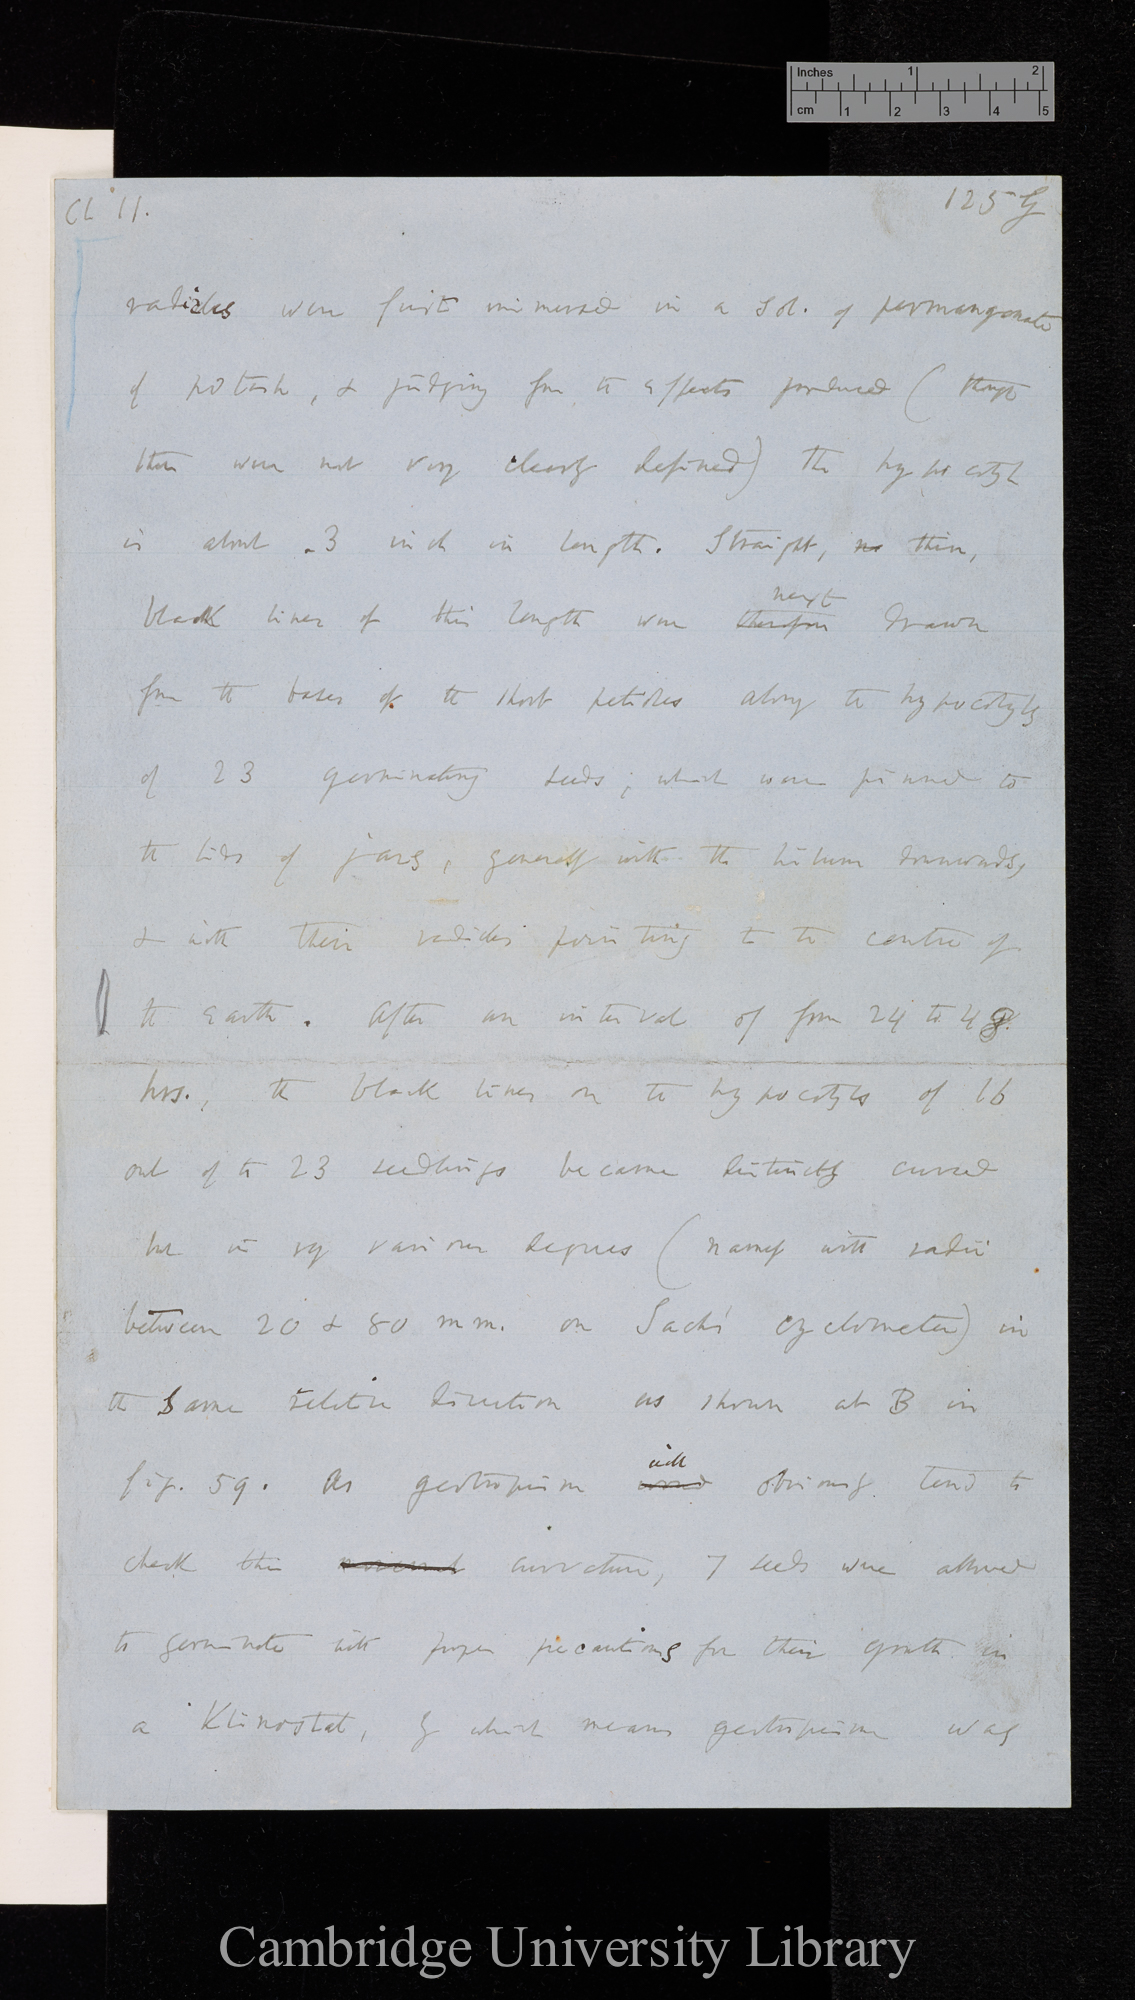 Inches 1 2
cm 1 2 3 4 5
Ch 11. 125 G
radicles were first immersed in a sol. of permanganate
of potash, & judging from the effects produced (though
these were not very clearly defined) the hypocotyl
is about .3 inch in length. Straight, no thin,
next
black lines of this length were therefore drawn
from the bases of the short petioles along the hypocotyls
of 23 germinating seeds; which were pinned to
the lids of jars, generally with the hilum downwards,
& with their radicles pointing to the centre of
the earth. After an interval of from 24 to 48
hrs., the black lines on the hypocotyls of 16
out of the 23 seedlings became distinctly curved
but in very various degrees (namely with radii
between 20 & 80 mm. on Sachs' cyclometer) in
the same relative direction as shown at B in
will
fig. 59. As geotropism would obviously tend to
check this movement curvature, 7 seeds were allowed
to germinate with proper precautions for their growth in
a Klinostat, by which means geotropism was
Cambridge University Library